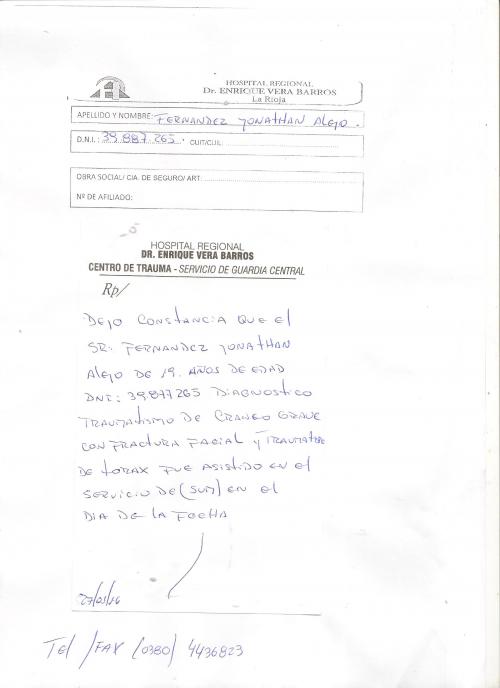 HOSPITAL REGIONAL
Dr. ENRIQUE VERA BARROS
La Rioja
APELLIDO Y NOMBRE: FERNANDEZ JONATHAN Alejo.
D.N.I.: 39.887.265. CUIT/CUIL:
OBRA SOCIAL/ CIA. DE SEGURO/ ART:
Nº DE AFILIADO:
HOSPITAL REGIONAL
DR. ENRIQUE VERA BARROS
CENTRO DE TRAUMA - SERVICIO DE GUARDIA CENTRAL
Rp/
DEJO CONSTANCIA QUE El
SR: FERNANDEZ JONATHAN
Alejo DE 19. AÑOS DE EDAD
DNI: 39877265 DIAGNOSTICO
TRAUMATISMO DE CRANEO GRAVE
CON FRACTURA FACIAL Y
DE TORAX FUE ASISTIDO EN El
SERVICIO DE (SUM) EN El
DIA DE LA FECHA
Tel /FAX (0380) 4436823